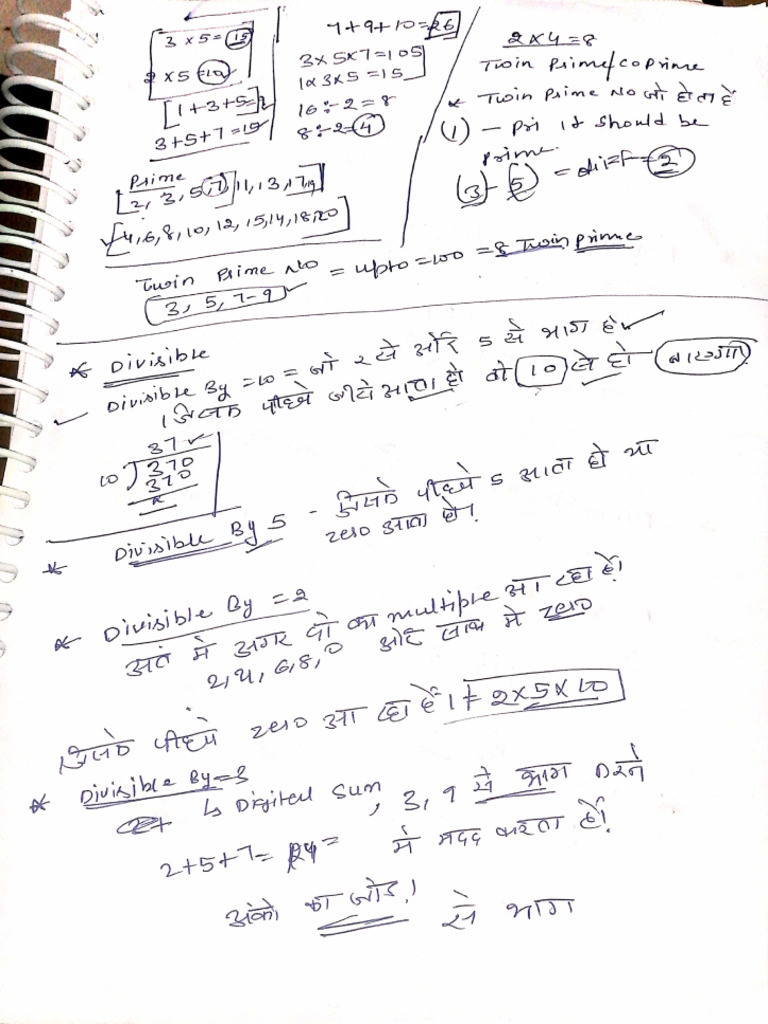 3 × 5 = 15
2 × 5 = 10
[1+3+5=]
3+5+7 = 15
7+9+10=26
3×5×7=105
1×3×5=15
16÷2=8
8÷2=4
2×4=8
Twin Prime/coprime
* Twin Prime No जो होता है
(1) – Pri it should be
prime.
(3) - (5) = diff = 2
Prime
[2, 3, 5, 7] 11, 13, 17, 19
[4,6,8,10,12,15,14,18,20]
Twin Prime No = upto = 100 = 8 Twin prime
3, 5, 7-9
* Divisible
Divisible By = 10 = जो 2 से और 5 से भाग है
जिसके पीछे जीरो आता हो वो 10 से हो जाएगा
37
10) 370
370
×
* Divisible By 5 - जिसके पीछे 5 आता हो या
zero आता है।
* Divisible By = 2
अंत में अगर दो का multiple आ रहा है।
2, 4, 6, 8, 0 और साथ में zero
जिसके पीछे zero आ रहा है। = 2×5×10
* Divisible By = 3
↳ Digital Sum, 3, 9 से भाग करने
2+5+7= में मदद करता है।
अंको का जोड़! से भाग